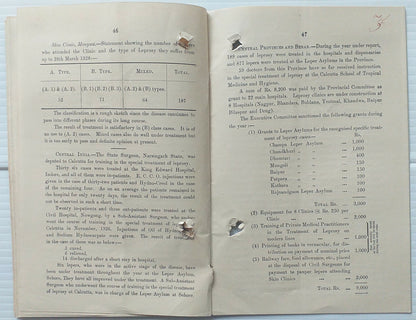 46
Mhow Clinic, Mhow.—Statement showing the number of
who attended the Clinic and the type of Leprosy they suffer from
up to 28th March 1928:—
A. Type. B. Type. Mixed. Total.
(A. 1) & (A. 2). (B. 1) (B. 2) (B. 3). (A. 2) & (B) types.
52 71 64 187
The classification is a rough sketch since the disease
pass into different phases during its long course.
The result of treatment is satisfactory in (B) class cases. It is of
no use to (A. 2) cases. Mixed cases also do well under treatment but
it is too early to pass and definite opinion at present.
Central India.—The State Surgeon, Narsingarh State, was
deputed to Calcutta for training in the special treatment of leprosy.
Thirty six cases were treated at the King Edward Hospital,
Indore, and all of them were in-patients. E. C. C. O. injections were
given in the case of thirty-two patients and Hydno-Creol in the case
of the remaining four. As on an average the patients remained in
the hospital for only twenty days, the result of the treatment could
not be observed in such a short time.
Twenty in-patients and three out-patients were treated at the
Civil Hospital, Nowgong, by a Sub-Assistant Surgeon, who
went the course of training in the special treatment of
Calcutta in November, 1926. Injections of Oil of
and Sodium Hydnocarpate were given. The result of
in the case of them was as below:—
3 cured.
6 relieved.
14 discharged after a short stay in hospital.
Six lepers, who were in the active stage of the disease, have
been under treatment throughout the year at the Leper Asylum in
Sehore. They have all improved under the treatment. A Sub-Assistant
Surgeon who underwent the course of training in the special treatment
of leprosy at Calcutta, is in charge of the Leper Asylum at Sehore.
47
Central Provinces and Berar.—During the year under report,
189 cases of leprosy were treated in the hospitals and dispensaries
and 871 lepers were treated at the Leper Asylums in the Province.
59 doctors from this Province have so far received instruction
in the special treatment of leprosy at the Calcutta School of Tropical
Medicine and Hygiene.
A sum of Rs. 8,200 was paid by the Provincial Committee as
grant to 22 main hospitals. Leprosy clinics are under construction at
8 Hospitals (Nagpur, Bhandara, Buldana, Yeotmal, Khandwa, Raipur
Bilaspur and Drug).
The Executive Committee sanctioned the following grants during
the year:—
(1) Grants to Leper Asylums for the recognised specific treat-
ment of leprosy cases:— Rs.
Champa Leper Asylum 1,000
Chandkhuri " 1,000
Dhamtari " 400
Mungeli "
Raipur " 150
Patpara " 100
Kothara " 100
Rajnandgaon Leper Asylum 100
3,000
(2) Equipment for 8 Clinics @ Rs. 250 per
Clinic 2,000
(3) Training of Private Medical Practitioners
in the Treatment of Leprosy on
modern lines
(4) Printing of books in vernacular, for dis-
tribution on payment of nominal price 1,000
(5) Railway fare, food allowance, etc., placed
at the disposal of Civil Surgeons for
payment to pauper lepers attending
Skin Clinics 2,000
Total Rs. 9,000